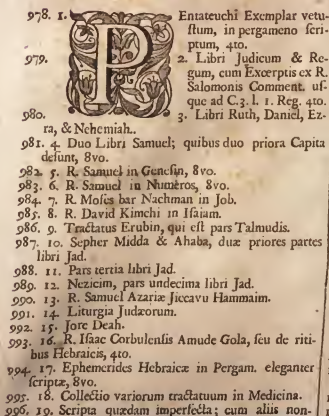 978. 1. PEntateuchi Exemplar vetu-
stum, in pergameno scri-
ptum, 4to.
979. 2. Libri Judicum & Re-
gum, cum Excerptis ex R.
Salomonis Comment. us-
que ad C. 3. l. 1. Reg. 4to.
980. 3. Libri Ruth, Daniel, Ez-
ra, & Nehemiah.
981. 4. Duo Libri Samuel; quibus duo priora Capita
desunt, 8vo.
982. 5. R. Samuel in Genesin, 8vo.
983. 6. R. Samuel in Numeros, 8vo.
984. 7. R. Moses bar Nachman in Job.
985. 8. R. David Kimchi in Isaiam.
986. 9. Tractatus Erubin, qui est pars Talmudis.
987. 10. Sepher Midda & Ahaba, duæ priores partes
libri Jad.
988. 11. Pars tertia libri Jad.
989. 12. Nezicim, pars undecima libri Jad.
990. 13. R. Samuel Azariæ Jiccavu Hammaim.
991. 14. Liturgia Judæorum.
992. 15. Jore Deah.
993. 16. R. Isaac Corbulensis Amude Gola, seu de riti-
bus Hebraicis, 4to.
994. 17. Ephemerides Hebraicæ in Pergam. eleganter
scriptæ, 8vo.
995. 18. Collectio variorum tractatuum in Medicina.
996. 19. Scripta quædam imperfecta; cum aliis non-